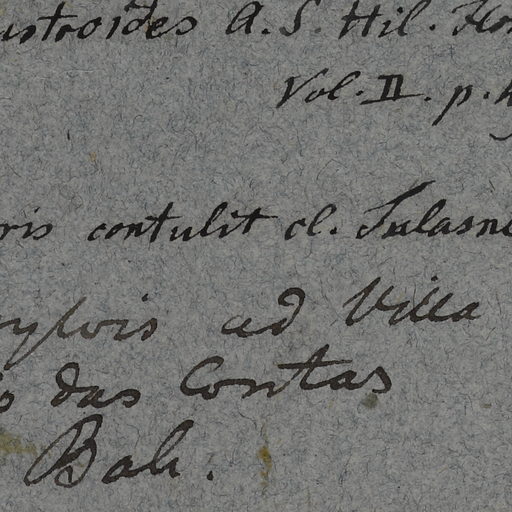 ustroides A. S. Hil.
Vol. II. p.
ris contulit cl. Tulasne
sylvis ad Villa
das Contas
Bah.